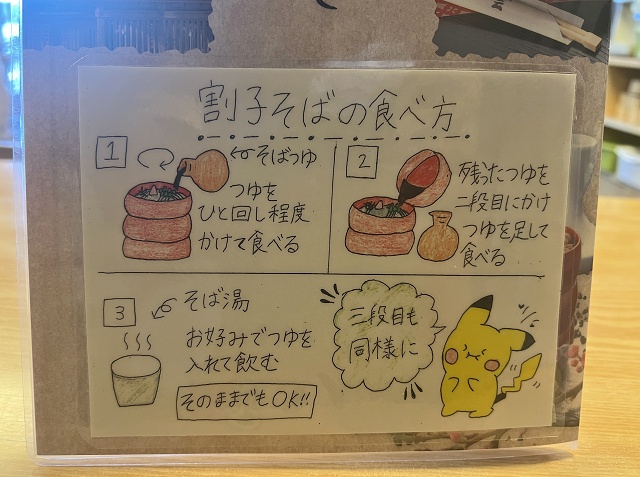 割子そばの食べ方
1
そばつゆ
つゆを
ひと回し程度
かけて食べる
2
残ったつゆを
二段目にかけ
つゆを足して
食べる
3
そば湯
お好みでつゆを
入れて飲む
そのままでもOK!!
三段目も
同様に